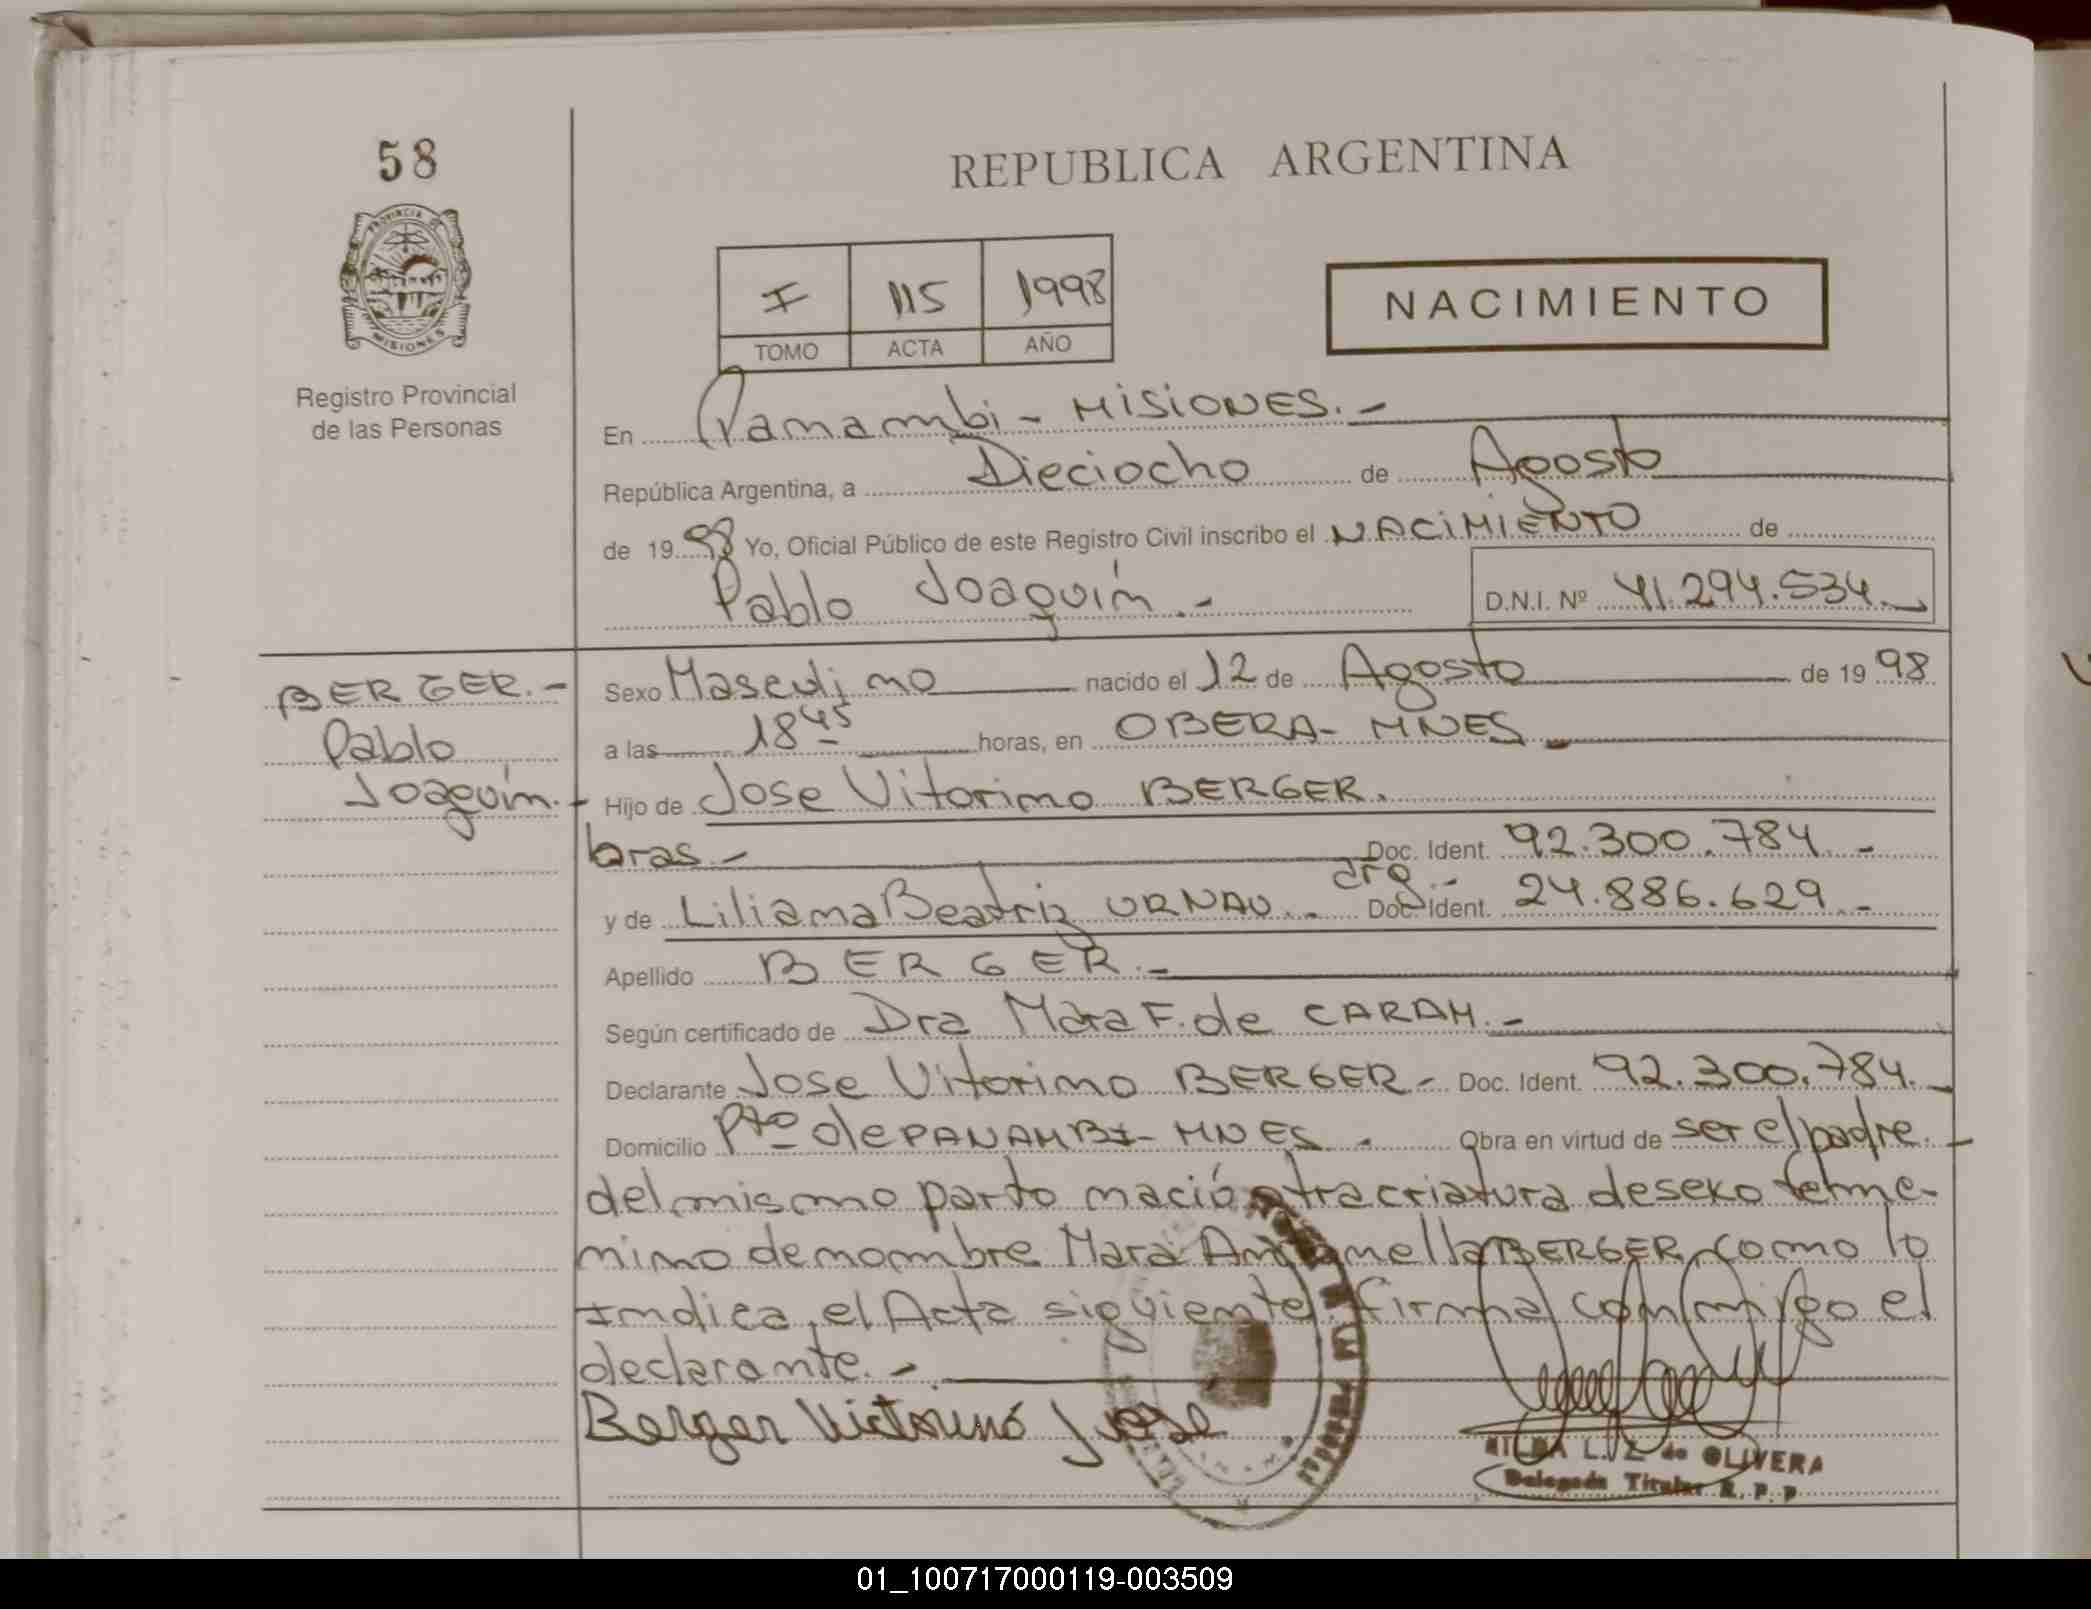 58
REPUBLICA ARGENTINA
PROVINCIA DE
MISIONES
Registro Provincial
de las Personas
I 115 1998
TOMO ACTA AÑO
NACIMIENTO
En Panambi - MISIONES.-
República Argentina, a Dieciocho de Agosto
de 1998 Yo, Oficial Público de este Registro Civil inscribo el NACIMIENTO de
Pablo Joaquín.- D.N.I. Nº 41.294.534.-
BERGER.-
Pablo
Joaquín.-
Sexo Masculino nacido el 12 de Agosto de 1998
a las 18 45 horas, en OBERA- MNES -
Hijo de Jose Vitorino BERGER.
bras.- Doc. Ident. 92.300.784.-
arg.-
y de Liliana Beatriz URNAU.- Doc. Ident. 24.886.629.-
Apellido BERGER.-
Según certificado de Dra Mara F. de CARAM.-
Declarante Jose Vitorino BERGER- Doc. Ident. 92.300.784.-
Domicilio Pto de PANAMBI- MNES. Obra en virtud de ser el padre.-
del mismo parto nació otra criatura de sexo feme-
nino de nombre Mara Antonella BERGER, como lo
Indica el Acta siguiente, firma conmigo el
declarante.-
Berger Victorino Jose
HILDA LUZ de OLIVERA
Delegada Titular R. P. P.
01_100717000119-003509